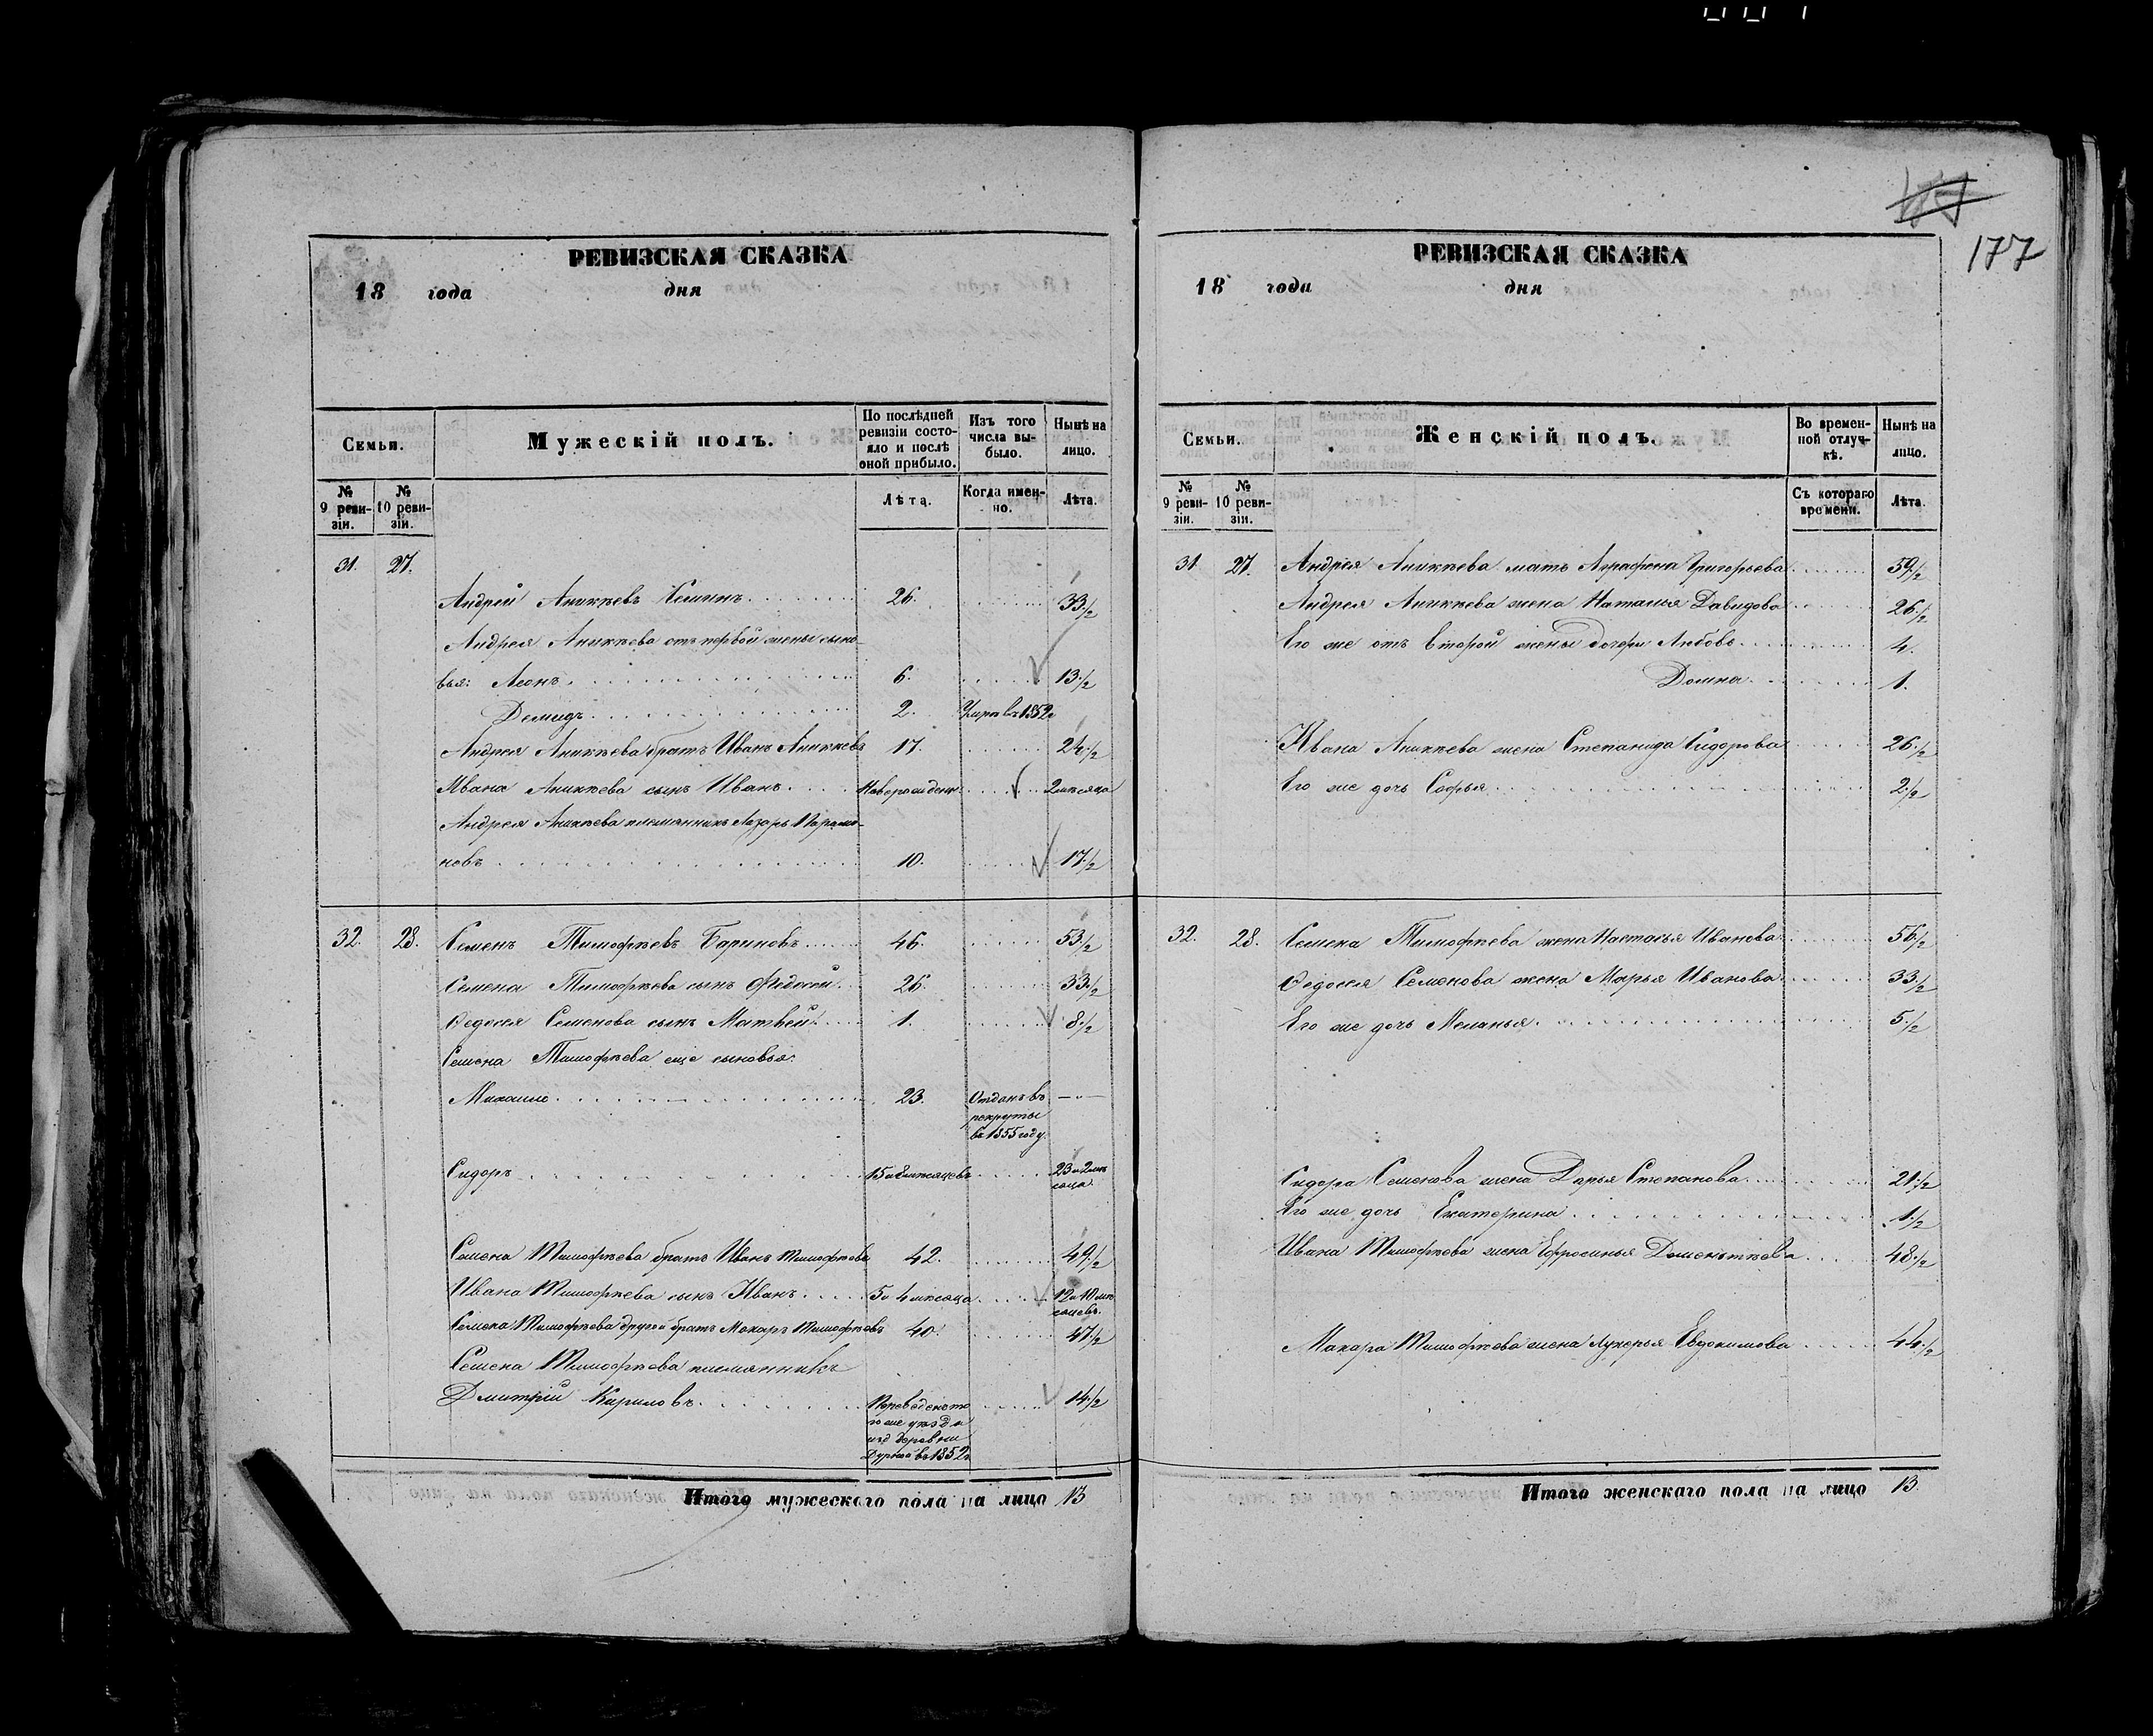 177
РЕВИЗСКАЯ СКАЗКА
18 года дня
Семьи.
Мужескій полъ.
По послѣдней ревизіи состояло и послѣ оной прибыло.
Изъ того числа выбыло.
Нынѣ на лицо.
№ 9 ревизіи.
№ 10 ревизіи.
Лѣта.
Когда именно.
Лѣта.
31. 27.
Андрей Аникѣевъ Неминъ 26. 33 1/2
Андрея Аникѣева отъ первой жены сыно-
вья: Леонъ 6. 13 1/2
Демидъ 2. Умре въ 1852 г
Андрея Аникѣева братъ Иванъ Аникѣевъ 17. 24 1/2
Ивана Аникѣева сынъ Иванъ Новорожденъ 2 мѣсяца
Андрея Аникѣева племянникъ Лазарь Парамо-
новъ 10. 17 1/2
32. 28. Семенъ Тимофѣевъ Бариновъ 46. 53 1/2
Семена Тимофѣева сынъ Федосей 26. 33 1/2
Федосея Семенова сынъ Матвей 1. 8 1/2
Семена Тимофѣева еще сыновья:
Михаило 23. Отданъ въ — „ —
рекруты
въ 1855 году.
Сидоръ 15 и 8 мѣсяцевъ 23 и 2 мѣ
сяца
Семена Тимофѣева братъ Иванъ Тимофѣевъ 42. 49 1/2
Ивана Тимофѣева сынъ Иванъ 5 и 4 мѣсяца 12 и 10 мѣ
сяцевъ.
Семена Тимофѣева другой братъ Макаръ Тимофѣевъ 40. 47 1/2
Семена Тимофѣева племянникъ
Дмитрій Кириловъ Переведенъ то 14 1/2
го же уѣзда
изъ деревни
въ 1852 г
Итого мужескаго пола на лицо 13
РЕВИЗСКАЯ СКАЗКА
18 года дня
Семьи.
Женскій полъ.
Во временной отлучкѣ.
Нынѣ на лицо.
№ 9 ревизіи.
№ 10 ревизіи.
Съ котораго времени.
Лѣта.
31 27. Андрея Аникѣева мать Аграфена Григорьева 59 1/2
Андрея Аникѣева жена Наталья Давидова 26 1/2
Его же отъ второй жены дочери Любовь 4.
Домна 1.
Ивана Аникѣева жена Степанида Сидорова 26 1/2
Его же дочь Софья 2 1/2
32. 28. Семена Тимофѣева жена Настасья Иванова 56 1/2
Федосея Семенова жена Марья Иванова 33 1/2
Его же дочь Меланья 5 1/2
Сидора Семенова жена Дарья Степанова 21 1/2
Его же дочь Екатерина 1 1/2
Ивана Тимофѣева жена Ефросинья Доментѣева 48 1/2
Макара Тимофѣева жена Лукерья Евдокимова 44 1/2
Итого женскаго пола на лицо 13.